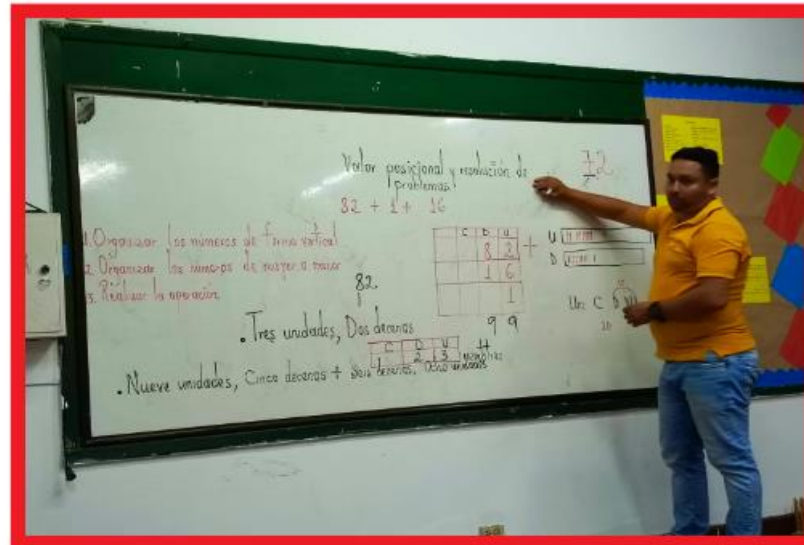 Valor posicional y resolución de
problemas
72
82 + 1 + 16
1. Organizar los números de forma vertical
2. Organizar los números de mayor a menor
3. Realizar la operación
C D U
8 2 +
1 6
1
9 9
82
U
D
Um C D U
10
. Tres unidades, Dos decenas
C D U
2 3
. Nueve unidades, Cinco decenas + Seis decenas, Ocho unidades